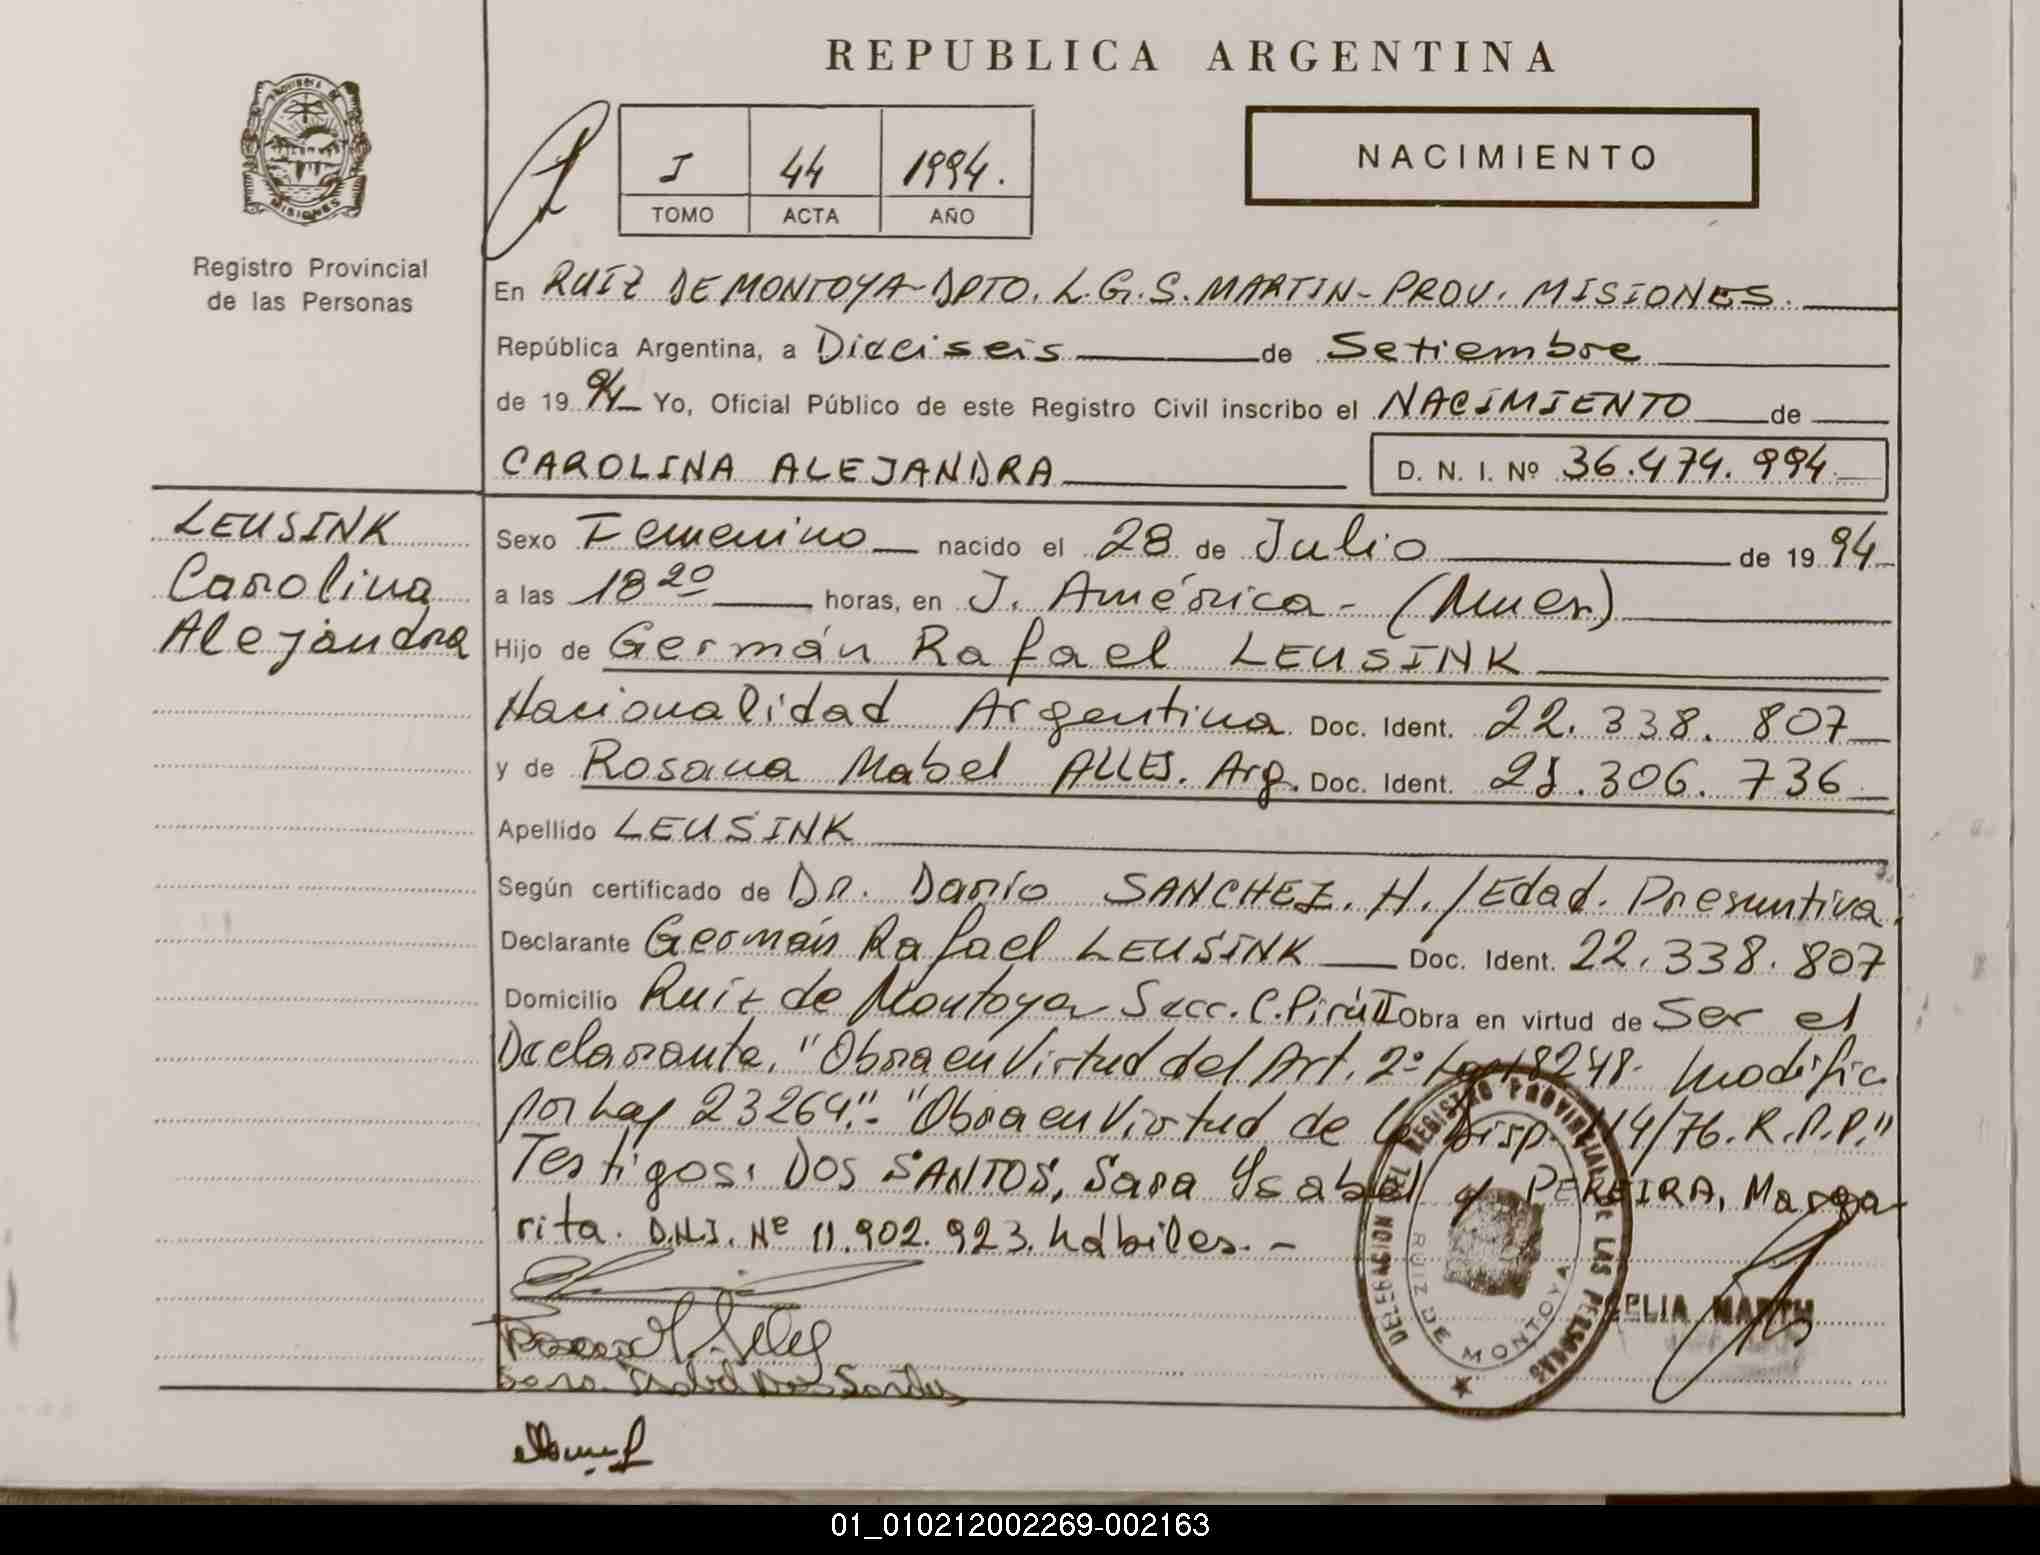 REPUBLICA ARGENTINA
PROVINCIA DE MISIONES
Registro Provincial
de las Personas
I 44 1994.
TOMO ACTA AÑO
NACIMIENTO
En RUIZ DE MONTOYA-DPTO. L.G.S. MARTIN-PROV. MISIONES.
República Argentina, a Dieciseis de Setiembre
de 19 94 Yo, Oficial Público de este Registro Civil inscribo el NACIMIENTO de
CAROLINA ALEJANDRA D. N. I. Nº 36.474.994
LEUSINK
Carolina
Alejandra
Sexo Femenino nacido el 28 de Julio de 19 94
a las 18 20 horas, en J. América - (Mnes.)
Hijo de Germán Rafael LEUSINK
Nacionalidad Argentina Doc. Ident. 22.338.807
y de Rosana Mabel ALLES. Arg. Doc. Ident. 21.306.736
Apellido LEUSINK
Según certificado de Dr. Darío SANCHEZ. H./Edad. Presuntiva.
Declarante Germán Rafael LEUSINK Doc. Ident. 22.338.807
Domicilio Ruiz de Montoya Secc. C. Obra en virtud de Ser el
Declarante. "Obra en Virtud del Art. 2º Ley 18248. Modific.
por Ley 23264".- "Obra en Virtud de la Disp. 114/76. R.P.P."
Testigos: DOS SANTOS, Sara Ysabel y PEREIRA, Marga-
rita. D.N.I. Nº 11.902.923. hábiles. -
DELEGACION DEL REGISTRO PROVINCIAL DE LAS PERSONAS
RUIZ DE MONTOYA
CELIA MARTH
Sara Isabel Dos Santos
01_010212002269-002163